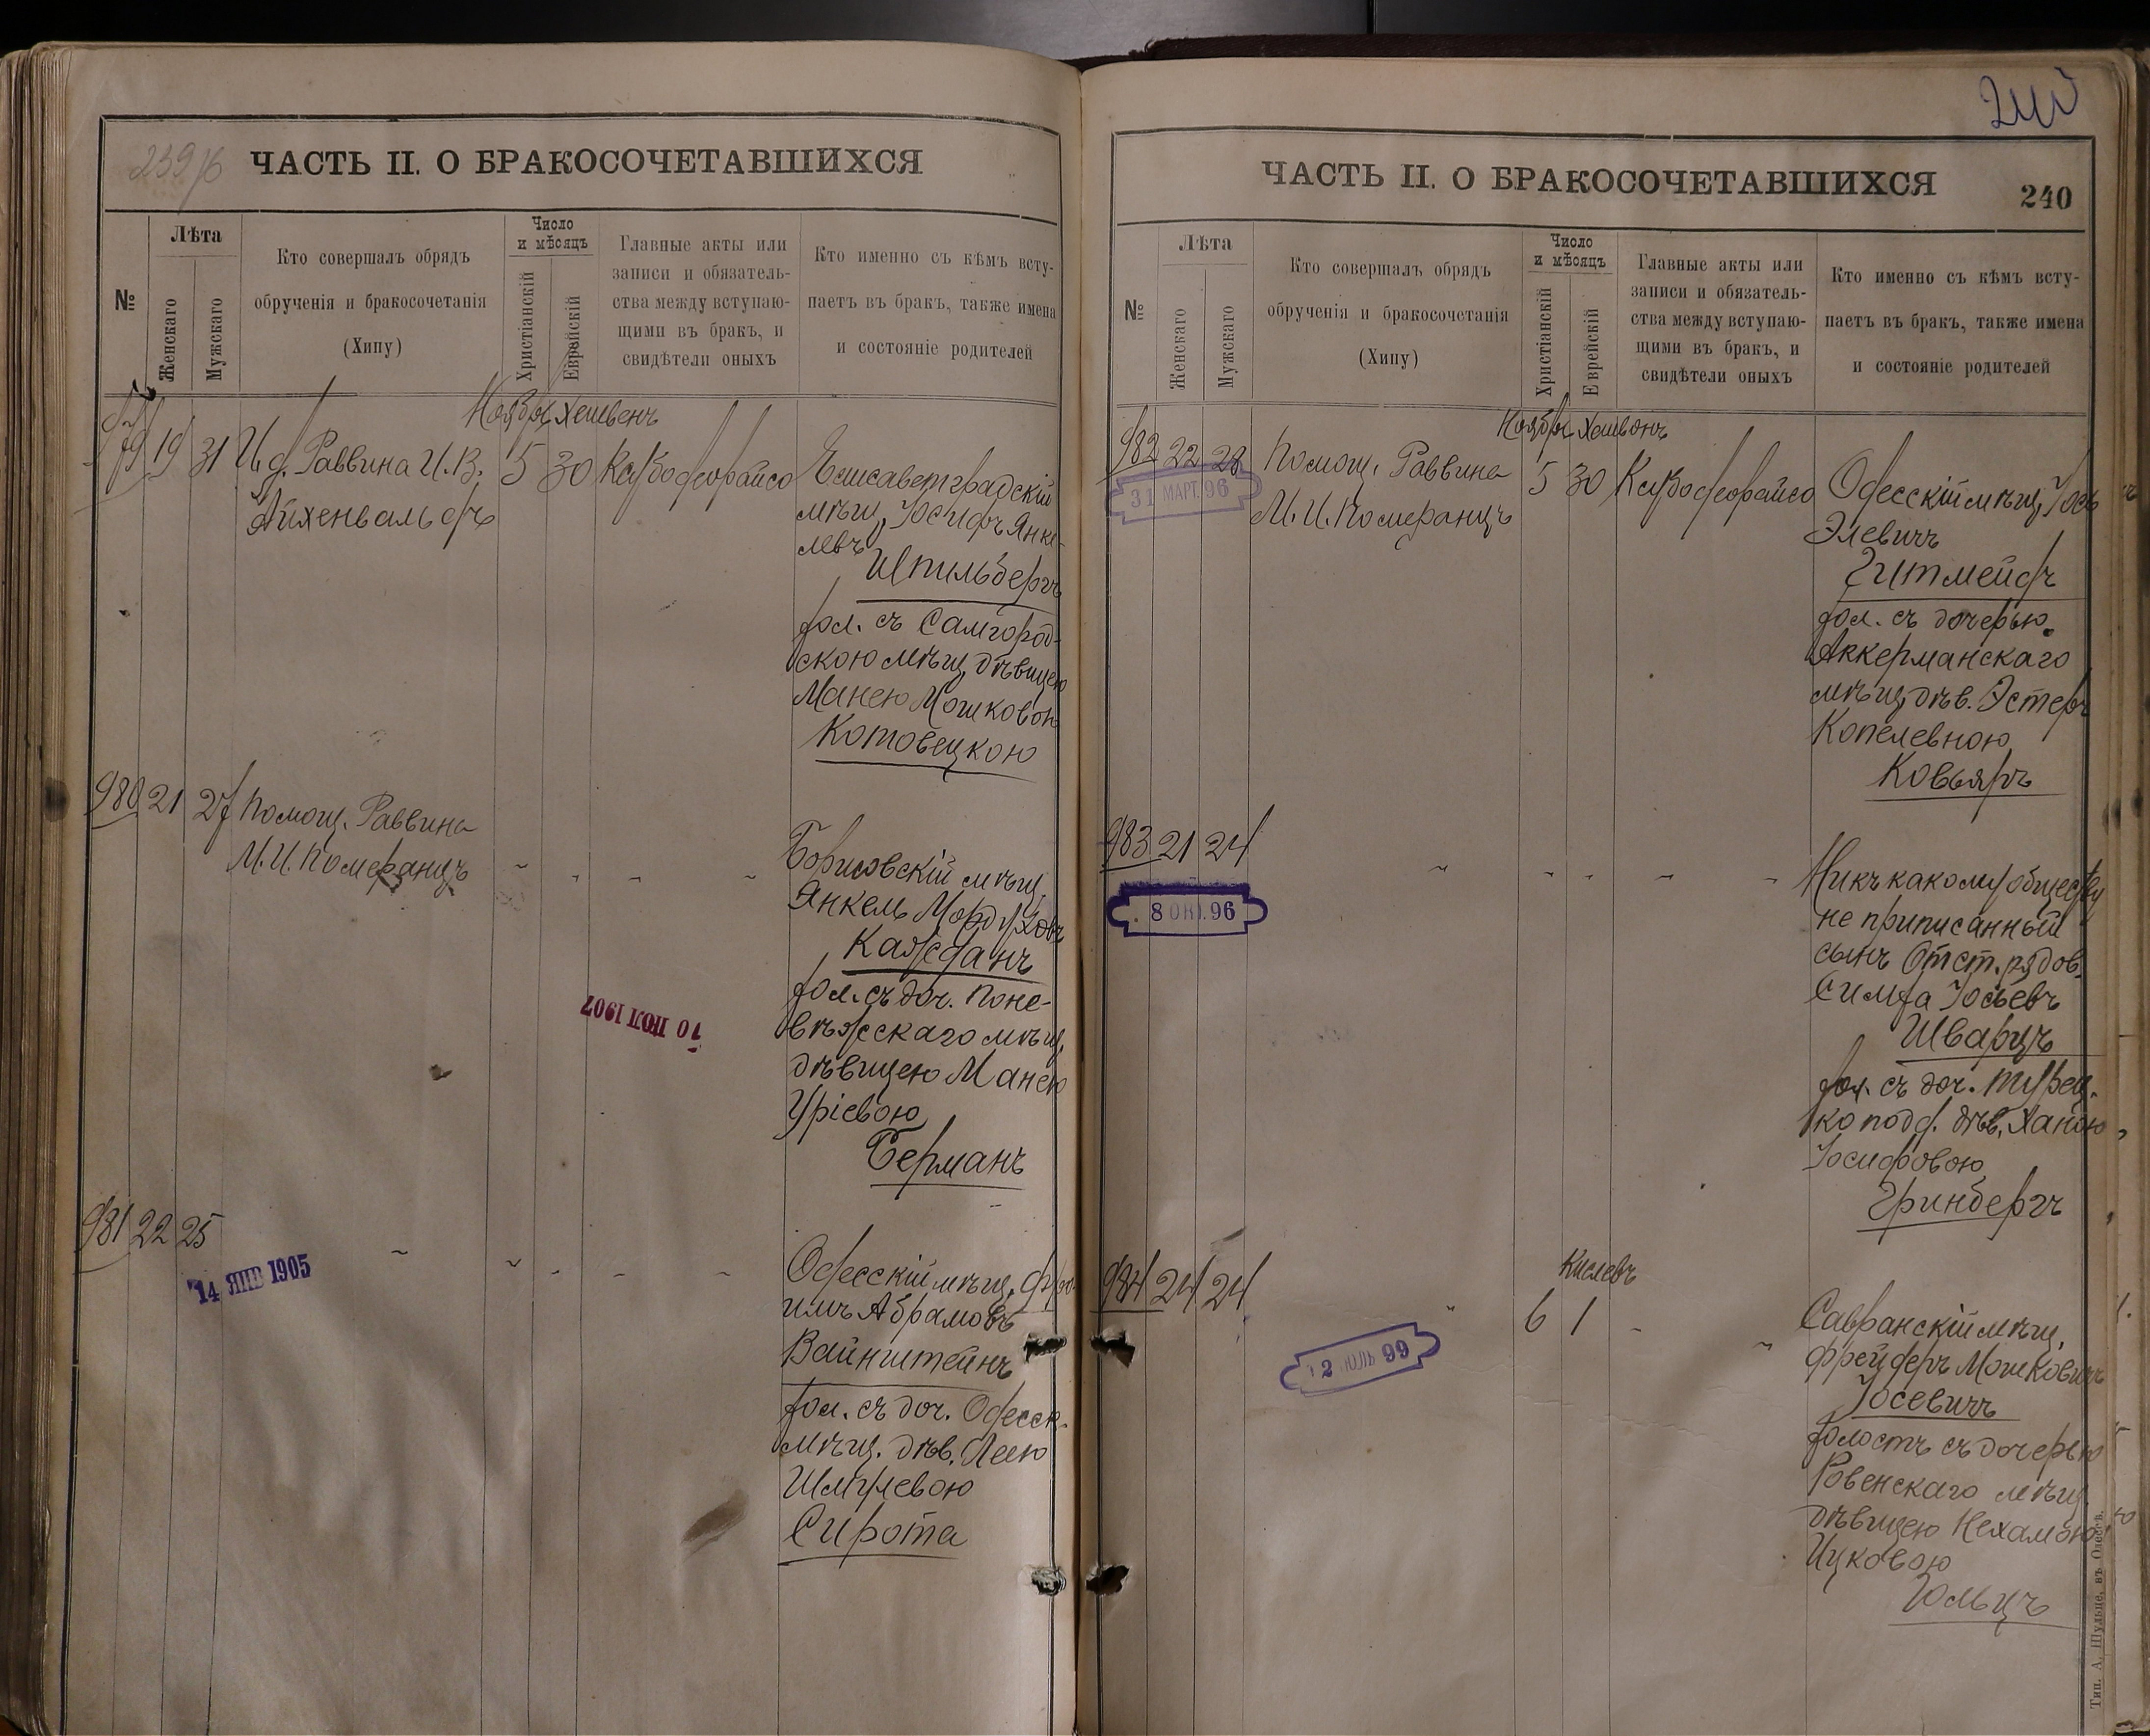 239 об
ЧАСТЬ II. О БРАКОСОЧЕТАВШИХСЯ
№
Лѣта
Женскаго
Мужскаго
Кто совершалъ обрядъ
обрученія и бракосочетанія
(Хипу)
Число
и мѣсяцъ
Христіанскій
Еврейскій
Главные акты или
записи и обязатель-
ства между вступаю-
щими въ бракъ, и
свидѣтели оныхъ
Кто именно съ кѣмъ всту-
паетъ въ бракъ, также имена
и состояніе родителей
Ноябрь Хешвенъ
979 19 31 И. д. Раввина И. В. 5 30 Кс/бодеорайсо
Айхенвальдъ
Елисаветградскій
мѣщ. Іосифъ Янке-
левъ
Шпильбергъ
хол. съ Самгород-
скою мѣщ. дѣвицею
Манею Мошковою
Котовецкою
980 21 27 Помощ. Раввина
М. И. Померанцъ
Борисовскій мѣщ.
Янкель Мордуховъ
Кажданъ
хол. съ доч. Поне-
вѣжскаго мѣщ.
дѣвицею Манею
Уріевою
Берманъ
10 ІЮЛ 1907
981 22 25
14 ЯНВ 1905
Одесскій мѣщ. Фро-
имъ Абрамовъ
Вайнштейнъ
хол. съ доч. Одесск.
мѣщ. дѣв. Леею
Шмулевою
Сирота
240
ЧАСТЬ II. О БРАКОСОЧЕТАВШИХСЯ
240
№
Лѣта
Женскаго
Мужскаго
Кто совершалъ обрядъ
обрученія и бракосочетанія
(Хипу)
Число
и мѣсяцъ
Христіанскій
Еврейскій
Главные акты или
записи и обязатель-
ства между вступаю-
щими въ бракъ, и
свидѣтели оныхъ
Кто именно съ кѣмъ всту-
паетъ въ бракъ, также имена
и состояніе родителей
Ноябрь Хешвонъ
982 22 28 Помощ. Раввина 5 30 Кс/бодеорайсо
31 МАРТ. 96
М. И. Померанцъ
Одесскій мѣщ. Іось
Элевичъ
Гитмейдъ
хол. съ дочерью
Аккерманскаго
мѣщ. дѣв. Эстеръ
Копелевною
Ковьяръ
983 21 24
8 ОКТ. 96
Ни къ какому обществу
не приписанный
сынъ Отст. рядов.
Симха Іосьевъ
Шварцъ
хол. съ доч. турец-
ко подд. дѣв. Ханою
Іосифовою
Гринбергъ
Кислевъ
984 24 24 6 1
12 ІЮЛЬ 99
Савранскій мѣщ.
Фрейдеръ Мошковичъ
Іосевичъ
холостъ съ дочерью
Ровенскаго мѣщ.
дѣвицею Нехамою
Ицковою
Гольцъ
Тип. А. Шульце, въ Одессѣ.